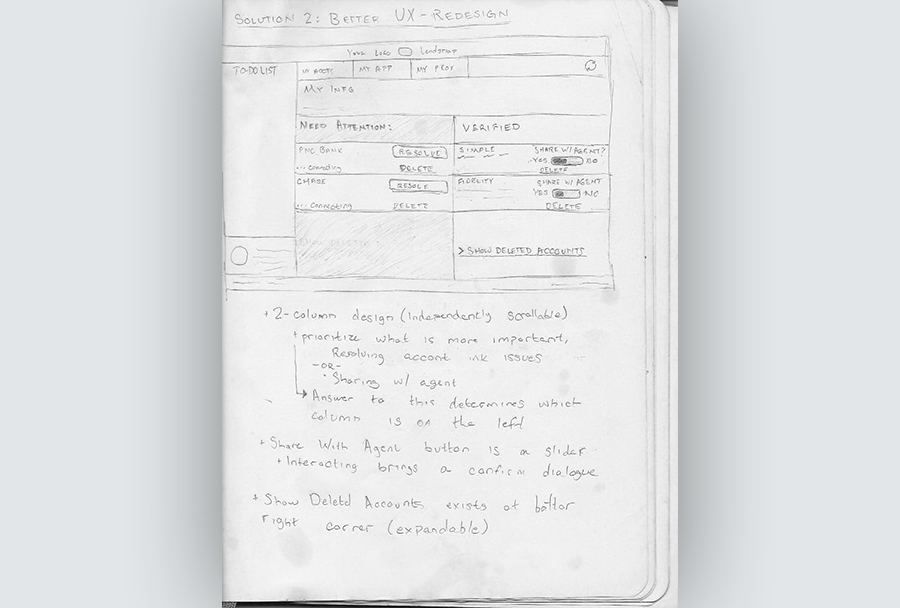 SOLUTION 2: BETTER UX-REDESIGN
Your Logo Lendsnap
TO-DO LIST
MY ACCTS MY APP MY PROF
MY INFO
NEED ATTENTION: VERIFIED
PNC BANK RESOLVE
... connecting DELETE
SIMPLE SHARE W/ AGENT?
YES NO
DELETE
CHASE RESOLE
... connecting DELETE
FIDELITY SHARE W/ AGENT
YES NO
DELETE
> SHOW DELETED ACCOUNTS
+ 2-column design (Independently scrollable)
+ prioritize what is more important,
Resolving accont ink issues
-OR-
• Sharing w/ agent
Answer to this determines which
column is on the left
+ Share With Agent button is a slider
+ Interacting brings a confirm dialogue
+ Show Deleted Accounts exists at bottor
right corner (expandable)